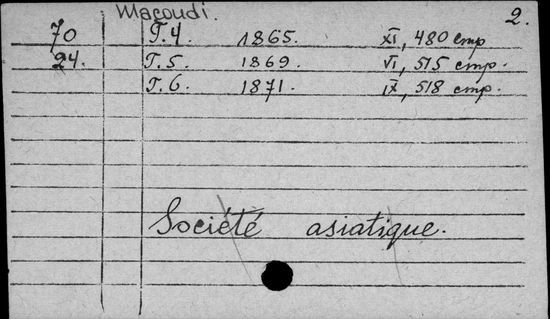 Maçoudi. 2.
70 Т. 4. 1865. XI, 480 стр
24. Т. 5. 1869. VI, 515 стр.
Т. 6. 1871. IX, 518 стр.
Société asiatique.